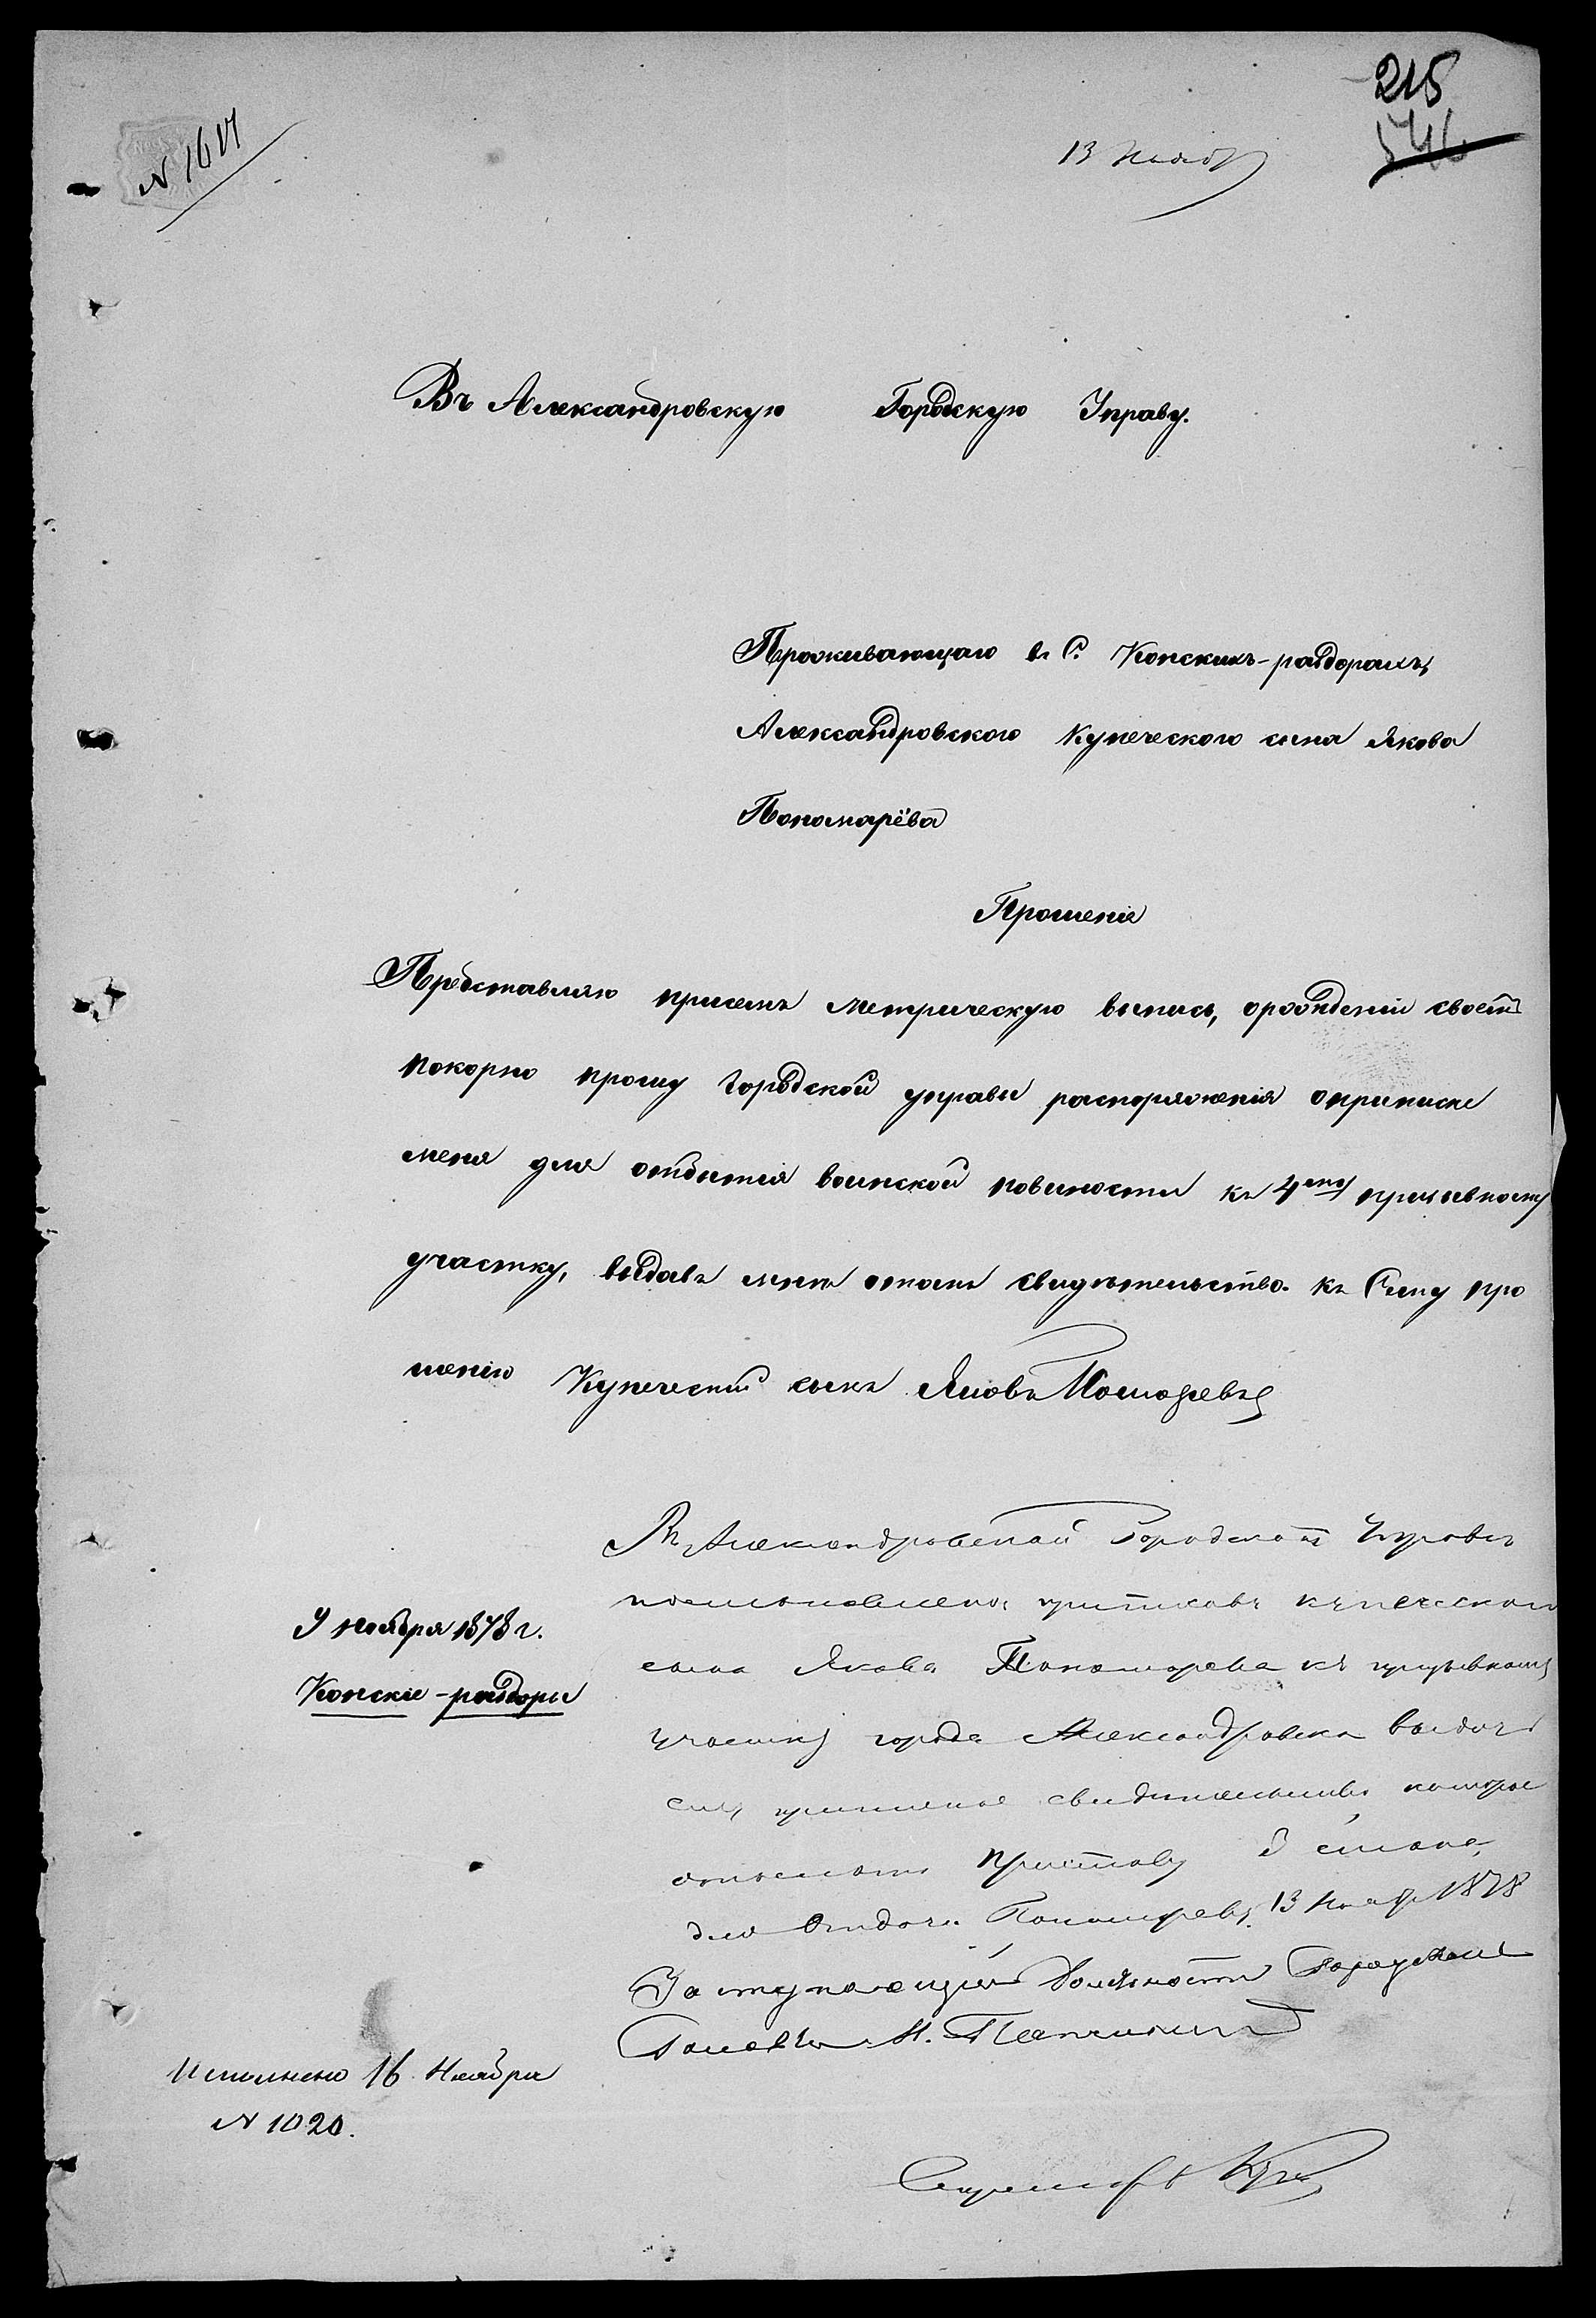 215
546
N 1617
13 Ноябр
Въ Александровскую Городскую Управу.
Проживающаго в. С. Конскихъ-раздорахъ,
Александровского Купеческого сына Якова
Пономарёва
Прошеніе
Представляю присемъ метрическую выпись, орождении своемъ
покорно прошу Городской управы распоряженія оприписке
меня для отбытія воинской повиности къ 4му призывному
участку, выдавъ мне отомъ свидѣтельство. Къ Сему про
шенію Купеческій сынъ Яковъ Пономаревъ
Въ Александровской Городской Управѣ
постановлено: приписавъ купеческого
сына Якова Пономарева къ призывному
участку города Александровска выдать
ему приписное свидѣтельство которое
отослать Приставу 3 стана,
для выдачи Пономареву. 13 Нояб 1878
Заступающій должность Городскаго
Головы М.
9 Ноября 1878 г.
Конскіе-раздоры
Исполнено 16 Ноября
N 1020.
Секретарь